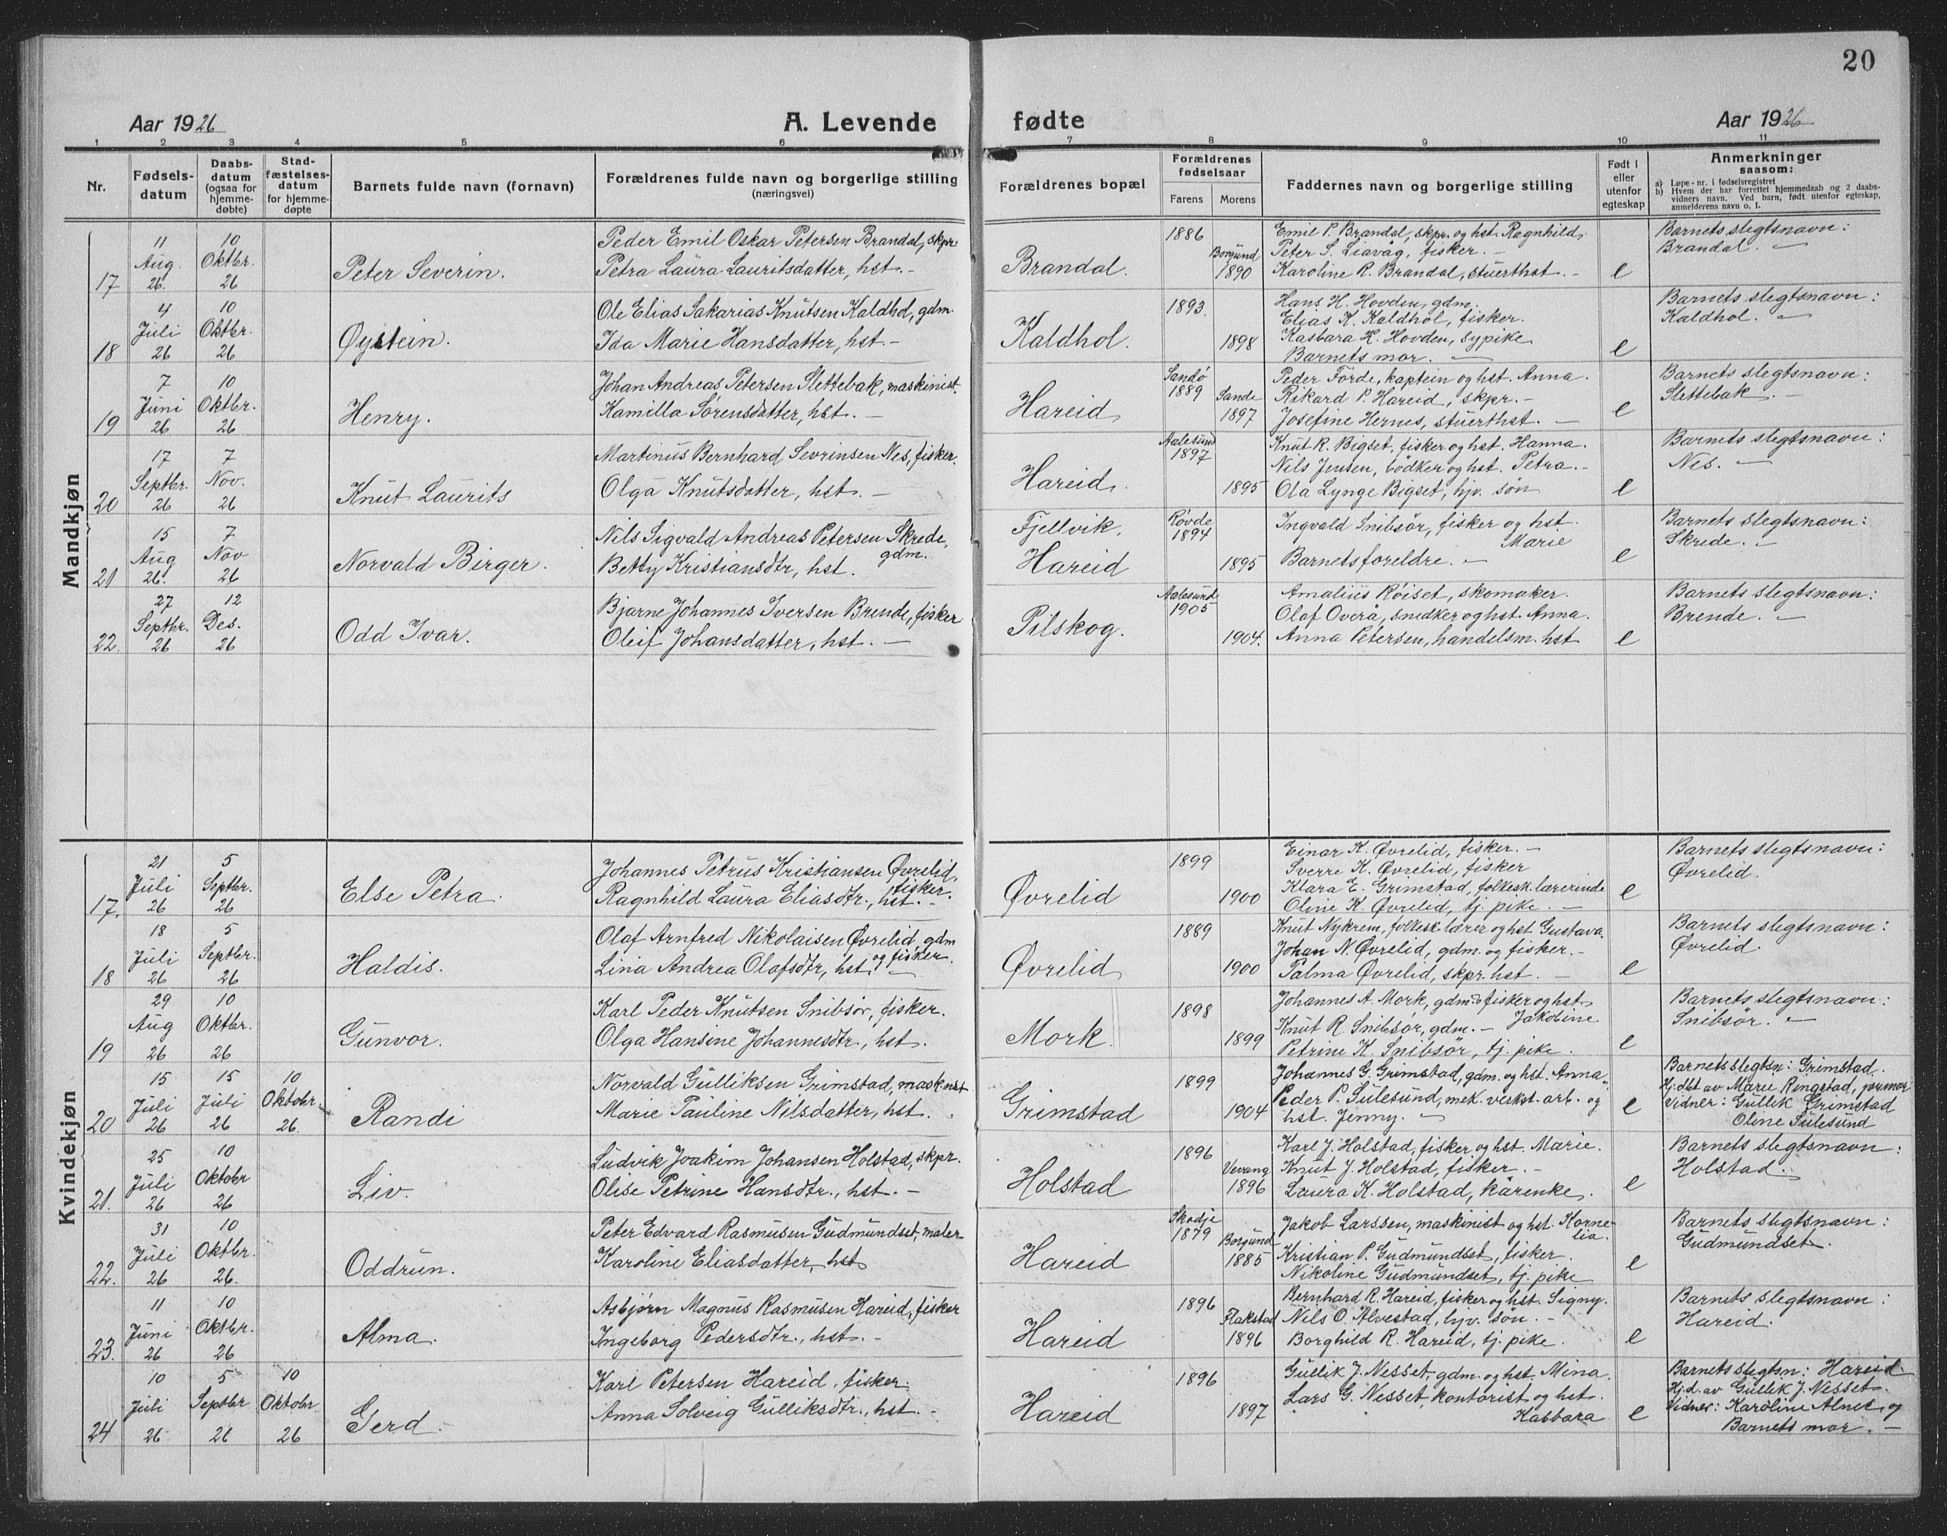 20
Aar 1926
A. Levende
fødte
Aar 1926
1 2 3 4 5 6 7 8 9 10 11
Nr.
Fødsels-
datum
Daabs-
datum
(ogsaa for
hjemme-
døbte)
Stad-
fæstelses-
datum
for hjemme-
døpte
Barnets fulde navn (fornavn)
Forældrenes fulde navn og borgerlige stilling
(næringsvei)
Forældrenes bopæl
Forældrenes
fødselsaar
Farens
Morens
Faddernes navn og borgerlige stilling
Født i
eller
utenfor
egteskap
Anmerkninger
saasom:
a) Løpe-nr. i fødselsregistret
b) Hvem der har forrettet hjemmedaab og 2 daabs-
vidners navn. Ved barn, født utenfor egteskap,
anmelderens navn o. l.
Mandkjøn
17
11
Aug.
26.
10
Oktbr.
26
Peter Severin.
Peder Emil Oskar Petersen Brandal, skpr
Petra Laura Lauritsdatter, hst. -
Brandal.
1886
Borgund
1890
Emil P. Brandal, skpr. og hst. Ragnhild.
Peter S. Liavåg, fisker. -
Karoline R. Brandal, stuerthst. -
e
Barnets slegtsnavn:
Brandal. -
18
4
Juli
26
10
Oktbr.
26
Øystein.
Ole Elias Sakarias Knutsen Kaldhol, gdm.
Ida Marie Hansdatter, hst -
Kaldhol.
1893.
1898
Hans H. Hovden, gdm.
Elias K. Kaldhol, fisker.
Kasbara H. Hovden, sypike
Barnets mor. -
e
Barnets slegtsnavn:
Kaldhol. -
19
7
Juni
26
10
Oktbr.
26
Henry.
Johan Andreas Petersen Slettebak, maskinist.
Kamilla Sørensdatter, hst. -
Hareid
Sandø
1889
Sande
1897
Peder Förde, kaptein og hst. Anna.
Rikard P. Hareid, skpr. -
Josefine Hernes, stuerthst. -
e
Barnets slegtsnavn:
Slettebak. -
20
17
Septbr.
26
7
Nov.
26
Knut Laurits
Martinus Bernhard Sevrinsen Nes, fisker.
Olga Knutsdatter, hst. -
Hareid.
Aalesund
1897
1895
Knut R. Bigset, fisker og hst. Hanna.
Nils Jensen, bödker og hst. Petra. -
Ola Lynge Bigset, hjv. søn
e
Barnets slegtsnavn:
Nes. -
21
15
Aug
26.
7
Nov
26
Norvald Birger.
Nils Sigvald Andreas Petersen Skrede,
gdm.
Betty Kristiansdtr, hst.
Fjellvik,
Hareid
Rovde
1894
1895
Ingvald Snibsör, fisker og hst.
Marie
Barnetsforeldre. -
e
Barnets slegtsnavn:
Skrede. -
22.
27
Septbr.
26
12
Des.
26
Odd Ivar.
Bjarne Johannes Iversen Brende, fisker
Oleif Johansdatter, hst. -
Pilskog.
Aalesund
1905
1904.
Amalius Röiset, skomaker.
Olaf Överå, snedker og hst. Anna.
Anna Petersen, handelsm. hst
e
Barnets slegtsnavn:
Brende. -
Kvindekjøn
17.
21
Juli
26
5
Septbr.
26
Else Petra.
Johannes Petrus Kristiansen Øvrelid,
fisker.
Ragnhild Laura Eliasdtr., hst. -
Øvrelid
1899
1900
Einar K. Øvrelid, fisker. -
Sverre K. Øvrelid, fisker
Klara E. Grimstad, folkesk. lærerinde
Oline K. Øvrelid, tj. pike. -
e
Barnets slegtsnavn:
Øvrelid.
18
18
Juli
26
5
Septbr.
26
Haldis.
Olaf Arnfred Nikolaisen Øvrelid, gdm
og fisker.
Lina Andrea Olafsdtr, hst. -
Øvrelid
1889
1900
Knut Nykrem, folkesk. lærer og hst Gustava.
Johan N. Øvrelid, gdm. og fisker. -
Palma Øvrelid, skpr. hst. -
e
Barnets slegtsnavn:
Øvrelid.
19
29
Aug
26
10
Oktbr.
26
Gunvor.
Karl Peder Knutsen Snibsør, fisker.
Olga Hansine Johannesdtr, hst.
Mork.
1898
1899
Johannes A. Mork, gdm. fisker og hst
Jakobine
Knut R. Snibsør, gdm. -
Petrine K. Snibsör, tj. pike.
e
Barnets slegtsnavn:
Snibsør. -
20
15
Juli
26
15
Juli
26
10
Oktobr.
26.
Randi
Norvald Gulliksen Grimstad, maskinist
Marie Pauline Nilsdatter, hst.
Grimstad
1899
1904
Johannes G. Grimstad, gdm. og hst. Anna.
Peder P. Sulesund, mek. verkst. arb. og
hst. Jenny. -
e
Barnets slegtsn: Grimstad.
Hj. dbt av Marie Ringstad, jormor
Vidner: Gullik Grimstad
Oline Sulesund
21.
25
Juli
26
10
Oktobr
26
Liv.
Ludvik Joakim Johansen Holstad, skpr.
Olise Petrine Hansdtr., hst. -
Holstad
1896
Vevang
1896
Karl J. Holstad, fisker og hst. Marie.
Knut J. Holstad, fisker. -
Laura K. Holstad, kårenke.
e
Barnets slegtsnavn:
Holstad.
22.
31
Juli
26
10
Oktbr.
26.
Oddrun.
Peter Edvard Rasmusen Gudmundset, maler
Karoline Eliasdatter, hst
Hareid
Skodje
1879
Borgund
1885
Jakob Larssen, maskinist og hst. Korne-
lia.
Kristian P. Gudmundset, fisker.
Nikoline Gudmundset, tj. pike
e
Barnets slegtsnavn:
Gudmundset.
23.
11
Juni
26
10
Oktbr.
26
Alma.
Asbjørn Magnus Rasmusen Hareid, fisker
Ingeborg Pedersdtr., hst. -
Hareid
1896
Flakstad
1896
Bernhard R. Hareid, fisker og hst. Signy.
Nils O. Alvestad, hjv. søn. -
Borghild R. Hareid, tj. pike.
e
Barnets slegtsnavn:
Hareid.
24
10
Juli
26
5
Septbr
26
10
Oktobr.
26
Gerd.
Karl Petersen Hareid, fisker.
Anna Solveig Gulliksdtr., hst. -
Hareid
1896
1897
Gullik J. Nesset, gdm. og hst. Mina.
Lars G. Nesset, kontorist og hst.
Kasbara
e
Barnets slegtsn: Hareid.
Hj.d. av Gullik J. Nesset.
Vidner: Karoline Alnes og
Barnets mor. -